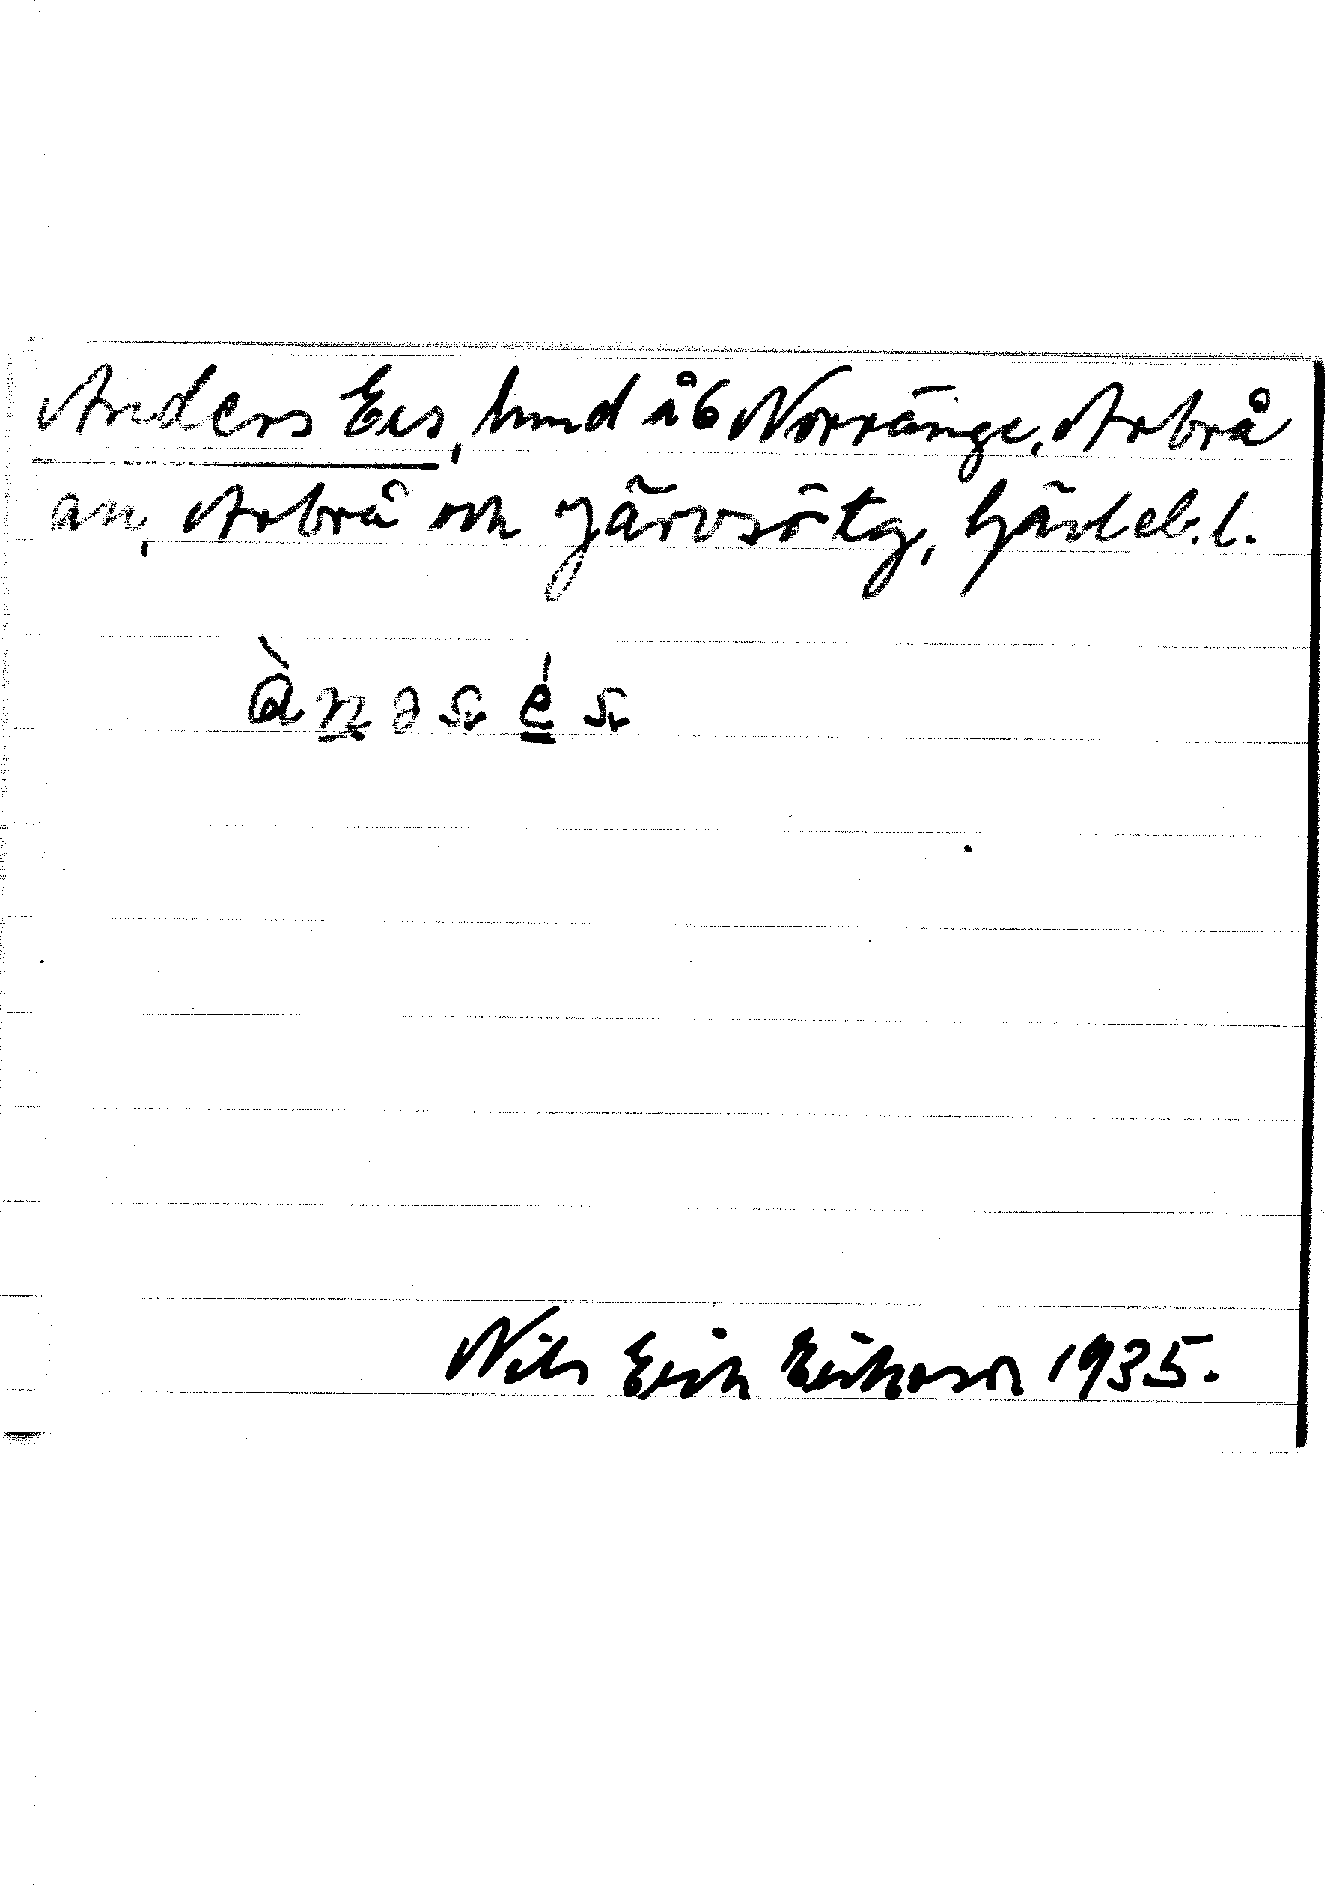 Anders Ers, hmd å 6 Norränge, Arbrå
sn, Arbrå och Järvsötg, Gävleb. l.
ànəsés
Nils Erik Eriksson 1935.